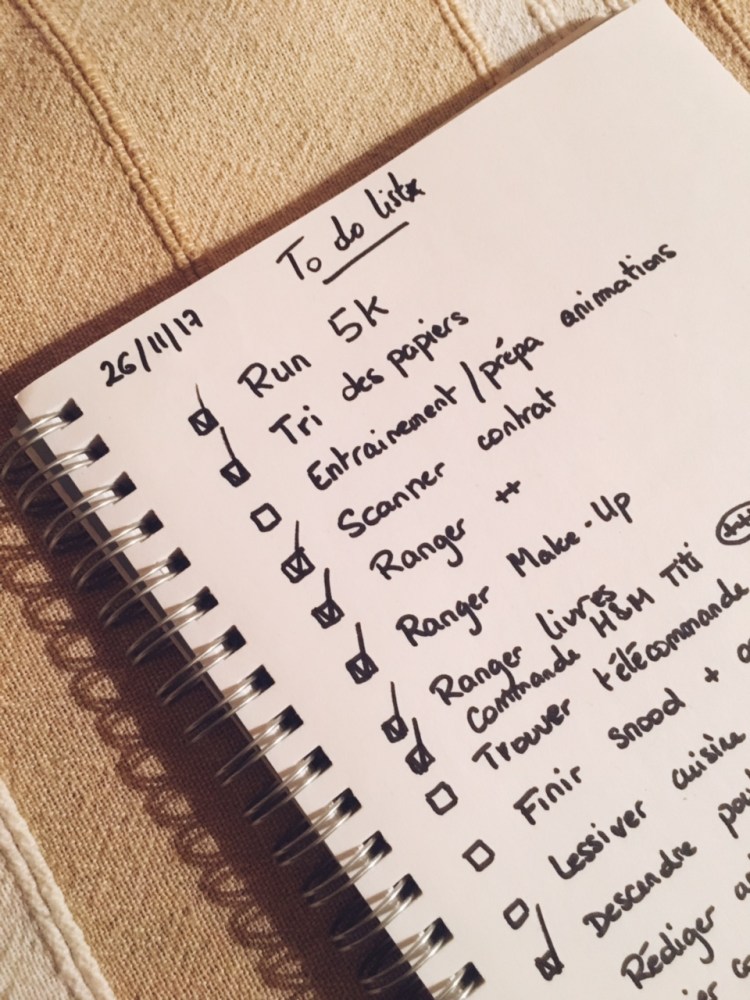 To do list
26/11/17
Run 5K
Tri des papiers
Entrainement / prépa animations
Scanner contrat
Ranger ++
Ranger Make-Up
Ranger livres
Commande H&M Titi
Trouver télécommande
Finir snood +
Lessiver cuisine
Descendre
Rédiger